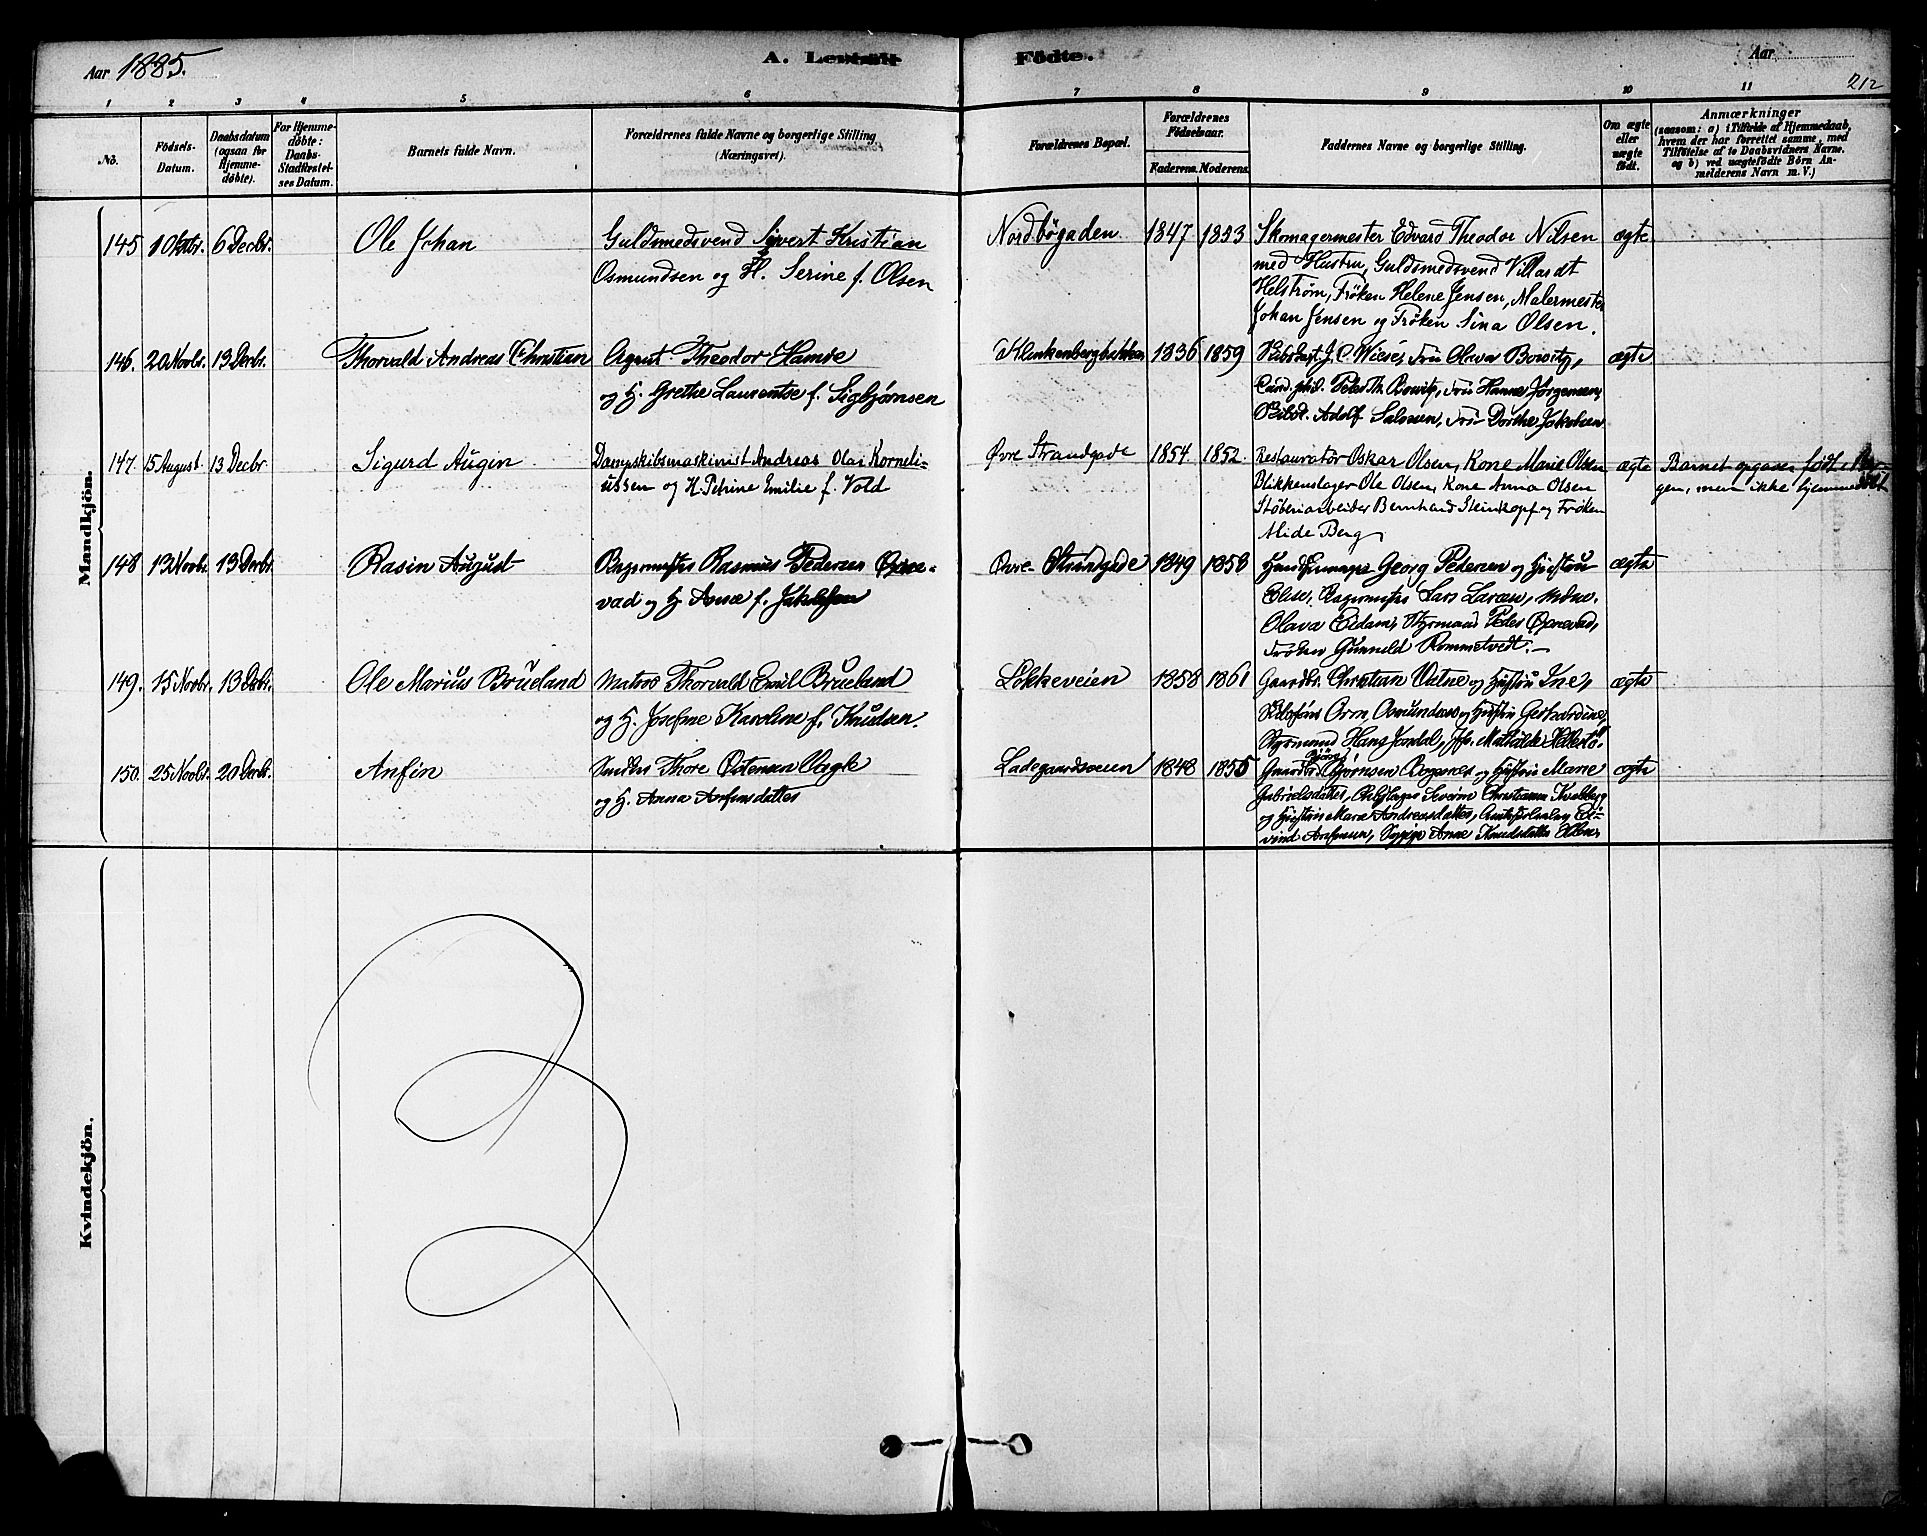 Aar 1885. A. Levende Fødte. Aar
212
1 2 3 4 5 6 7 8 9 10 11
No. Fødsels-Datum. Daabsdatum (ogsaa for Hjemme-døbte). For Hjemme-døbte: Daabs-Stadfæstel-ses Datum. Barnets fulde Navn. Forældrenes fulde Navne og borgerlige Stilling (Næringsvei). Forældrenes Bopæl. Forældrenes Fødselsaar. Faderens. Moderens. Faddernes Navne og borgerlige Stilling. Om ægte eller uægte født. Anmærkninger (saasom: a) i Tilfælde af Hjemmedaab, hvem der har forrettet samme, med Tilføielse af to Daabsvidners Navne, og b) ved uægtefødte Børn An-melderens Navn m. V.)
Mandkjön.
145 1 Oktbr. 6 Decbr. Ole Johan Guldsmedsvend Sivert Kristian Nordbøgaden 1847 1853 Skomagermester Edvard Theodor Nilsen ægte
Osmundsen og H. Serine f. Olsen med Hustru, Guldsmedsvend Villardt
Helstrøm, Frøken Helene Jensen, Malermester
Johan Jensen og Frøken Sina Olsen.
146. 20 Novbr. 13 Decbr. Thorvald Andreas Christian Agent Theodor Hamre 1836 1859 Skibskapt. J. C. Wiese, Fru Olava Bowitz, ægte
og H. Grethe Laurentse f. Sigbjørnsen Cand. phil. Peder Th. Bowitz, Fru Hanna Jørgensen,
Adolf Salvesen, Fru Dorthe Jakobsen
147. 15 August 13 Decbr. Sigurd Augin Dampskibsmaskinist Andreas Olai Korneli- Øvre Strandgade 1854 1852. Restauratør Oskar Olsen, Kone Marie Olsen ægte Barnet opgaves født i Ber-
ussen og H. Petrine Emilie f. Vold Blikkenslager Ole Olsen, Kone Anna Olsen gen, men ikke hjemmedøbt
Støberiarbeider Bernhard Steinkopf og Frøken
Mide Berg
148 13 Novbr. 13 Decbr. Rasin August Bagermester Rasmus Pedersen Øvre Strandgade 1849 1858 Georg Pedersen og Hustru ægte
vad og H. Anne f. Jakobsen Elise, Bagermester Lars Larsen, Mdme.
Olava Eidam, Styrmand Peder
Frøken Gunneld Rommetvedt.
149. 15 Novbr. 13 Decbr. Ole Marius Brueland Matros Thorvald Emil Brueland Løkkeveien 1858 1861 Gaardbr. Christian Vatne og Hustru Ine, ægte
og H. Josefine Karoline f. Knudsen. Osmundsen og Hustru Gerhardine,
Styrmand Hans Jondal, Jfr. Mathilde
150. 25 Novbr. 20 Decbr. Anfin Snedker Thore Østensen Vagle Ladegaardsveien 1848 1855 Gaardbr. Bjørnsen og Hustru Marie ægte
og H. Anna Anfinsdatter Gabrielsdatter, Severin Christiansen
og Hustru Maria Andreasdatter,
vind Anfinsen, Anne Knudsdatter
Kvindekjön.